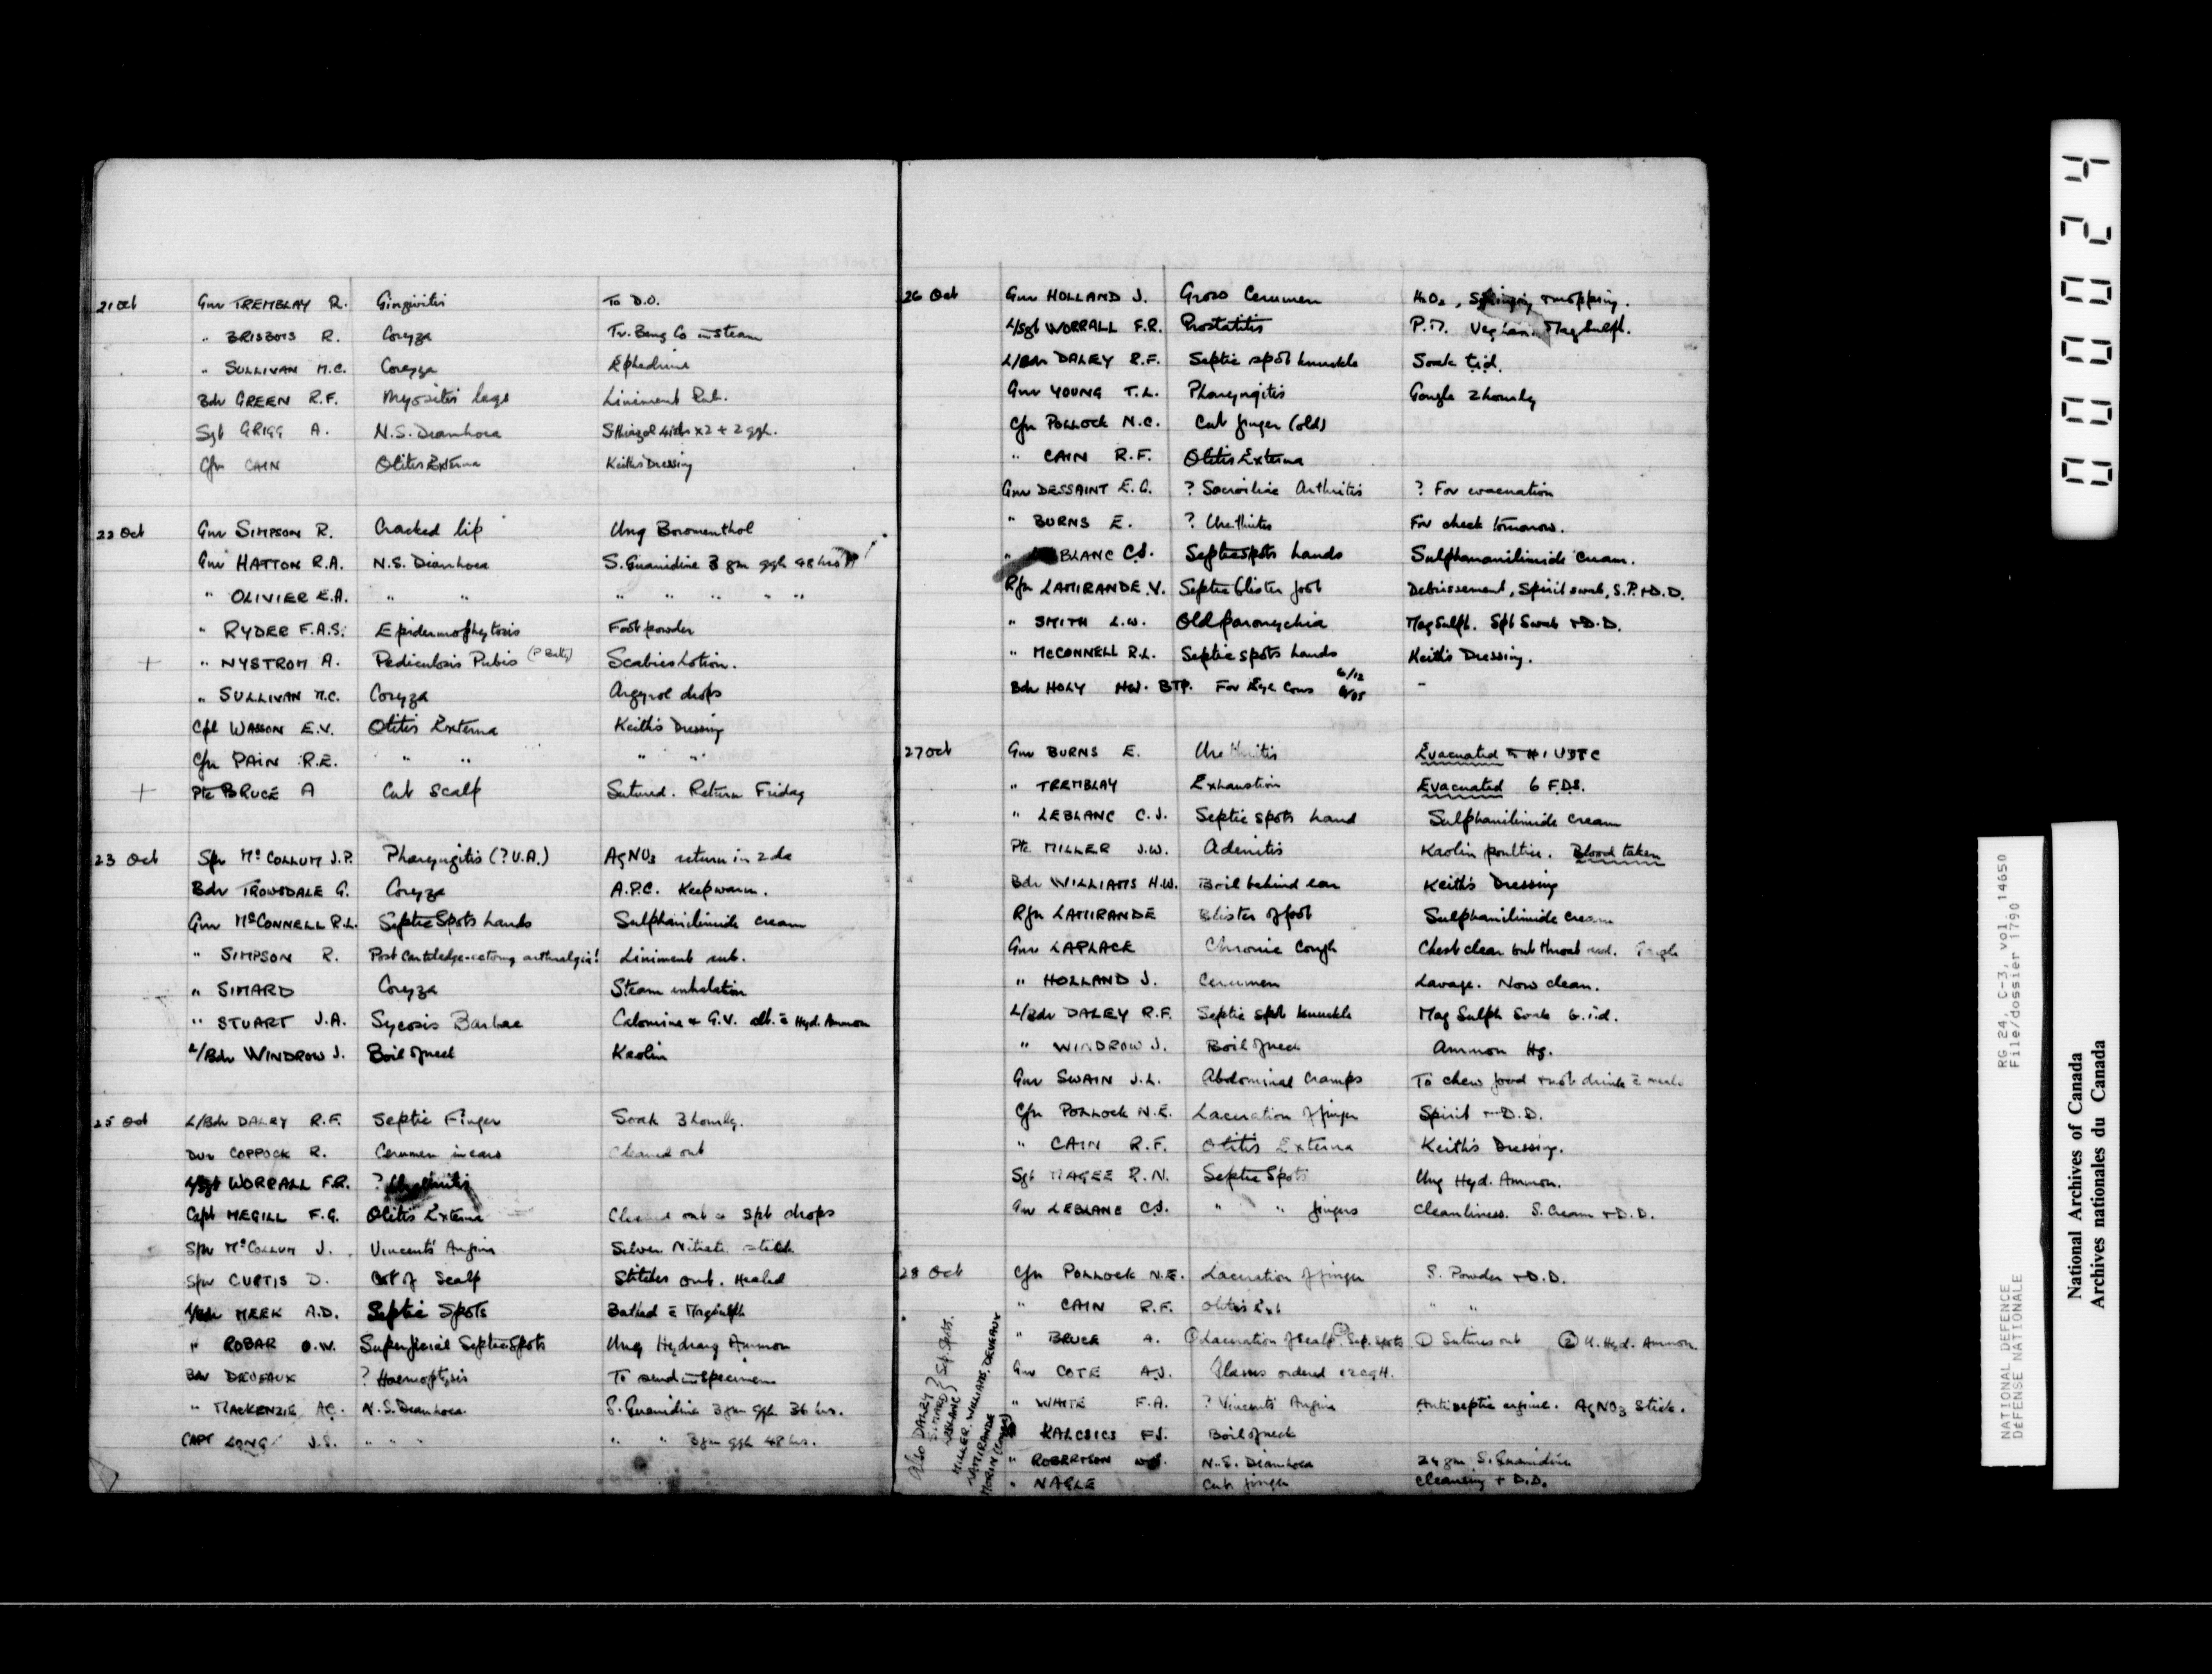 21 Oct Gnr TREMBLAY R. Gingivitis To D.O.
" BRISBOIS R. Coryza Tr. Benz Co in steam
" SULLIVAN M.C. Coryza Ephedrine
Bdr GREEN R.F. Myositis legs Liniment Rub.
Sgt GRIGG A. N.S. Diarrhoea
Cfn CAIN Otitis Externa Keith's Dressing
22 Oct Gnr SIMPSON R. Cracked lip Ung Boromenthol
Gnr HATTON R.A. N.S. Diarrhoea S. Guanidine 3 gm qqh 48 hrs
" OLIVIER E.A. " " " " " " "
" RYDER F.A.S. Epidermophytosis Foot powder
+ " NYSTROM A. Pediculosis Pubis Scabies Lotion.
" SULLIVAN M.C. Coryza Argyrol drops
Cpl WASSON E.V. Otitis Externa Keith's Dressing
Cfn PAIN R.E. " " " "
+ Pte BRUCE A Cut Scalp Sutured. Return Friday
23 Oct Spr McCOLLUM J.P. Pharyngitis (? V.A.) AgNO3 return in 2 da
Bdr TROWSDALE G. Coryza A.P.C. Keep warm.
Gnr McCONNELL R.L. Septic Spots hands Sulphanilimide cream
" SIMPSON R. Post Cartiledge-ectomy arthralgia! Liniment rub.
" SIMARD Coryza Steam inhalation
" STUART J.A. Sycosis Barbae Calomine & G.V. alt. c̄ Hyd. Ammon
L/Bdr WINDROW J. Boil of neck Kaolin
25 Oct L/Bdr DALEY R.F. Septic Finger Soak 3 hourly.
Dvr COPPOCK R. Cerumen in ears Cleaned out
L/Sgt WORRALL F.R. ?
Capt MEGILL F.G. Otitis Externa Cleaned out c̄ Spt drops
Spr McCOLLUM J. Vincent's Angina Silver Nitrate stick
Spr CURTIS D. Cut of Scalp Stitches out. Healed
L/Bdr MEEK A.D. Septic Spots Bathed c̄ MagSulph
" ROBAR O.W. Superficial Septic Spots Ung Hydrarg Ammon
Bdr DEVEAUX ? Haemoptysis To send in specimen
" MACKENZIE A.C. N.S. Diarrhoea S. Guanidine 3 gm qqh 36 hrs.
CAPT LONG J.S. " " " " " 3 gm qqh 48 hrs.
26 Oct Gnr HOLLAND J. Gross Cerumen H2O2, Syringing & mopping.
L/Sgt WORRALL F.R. Prostatitis P.M. MagSulph.
L/Bdr DALEY R.F. Septic spot knuckle Soak t.i.d.
Gnr YOUNG T.L. Pharyngitis Gargle 2 hourly
Cfn POLLOCK N.C. Cut finger (old)
" CAIN R.F. Otitis Externa
Gnr DESSAINT E.G. ? Sacroiliac Arthritis ? For evacuation
" BURNS E. ? Urethritis For check tomorrow.
" LEBLANC C.J. Septic spots hands Sulphananilimide cream.
Rfn LAMIRANDE V. Septic blister foot Debrissement, Spirit swab, S.P. + D.D.
" SMITH L.W. Old paronychia MagSulph. Spt Swab + D.D.
" McCONNELL R.L. Septic spots hands Keith's Dressing.
Bdr HOLY H.W. BTP. For Eye Cons 6/12 -
27 Oct Gnr BURNS E. Urethritis Evacuated to #1 VDTC
" TREMBLAY Exhaustion Evacuated 6 F.D.S.
" LEBLANC C.J. Septic spots hand Sulphanilimide cream
Pte MILLER J.W. Adenitis Kaolin poultice. Blood taken
Bdr WILLIAMS H.W. Boil behind ear Keith's Dressing
Rfn LAMIRANDE Blister of foot Sulphanilimide cream
Gnr LAPLACE Chronic Cough Chest clear but throat red. Gargle
" HOLLAND J. Cerumen Lavage. Now clean.
L/Bdr DALEY R.F. Septic spot knuckle Mag Sulph Soak t.i.d.
" WINDROW J. Boil of neck Ammon Hg.
Gnr SWAIN J.L. Abdominal Cramps To chew food & not drink c̄ meals
Cfn POLLOCK N.E. Laceration of finger Spirit + D.D.
" CAIN R.F. Otitis Externa Keith's Dressing.
Sgt MAGEE R.N. Septic Spots Ung Hyd. Ammon.
Gnr LEBLANC C.J. " " fingers Cleanliness. S. Cream + D.D.
28 Oct Cfn POLLOCK N.E. Laceration of finger S. Powder + D.D.
" CAIN R.F. Otitis Ext " "
" BRUCE A. ① Laceration of Scalp ② Sep. Spots ① Sutures out ② U. Hyd. Ammon
Gnr COTE A.J. Glasses ordered
" WHITE F.A. ? Vincent's Angina Antiseptic AgNO3 Stick.
" KALCSICS F.J. Boil of neck
" ROBERTSON N.S. Diarrhoea 24 gm S. Guanidine
" NAGLE Cut finger Cleansing + D.D.
Also DALEY
SIMARD
LEBLANC } Sp. Spots.
MILLER, WILLIAMS, DEVEAUX
LAMIRANDE
MORIN
000024
RG 24, C-3, vol 14650
File/dossier 1790
NATIONAL DEFENCE
DÉFENSE NATIONALE
National Archives of Canada
Archives nationales du Canada